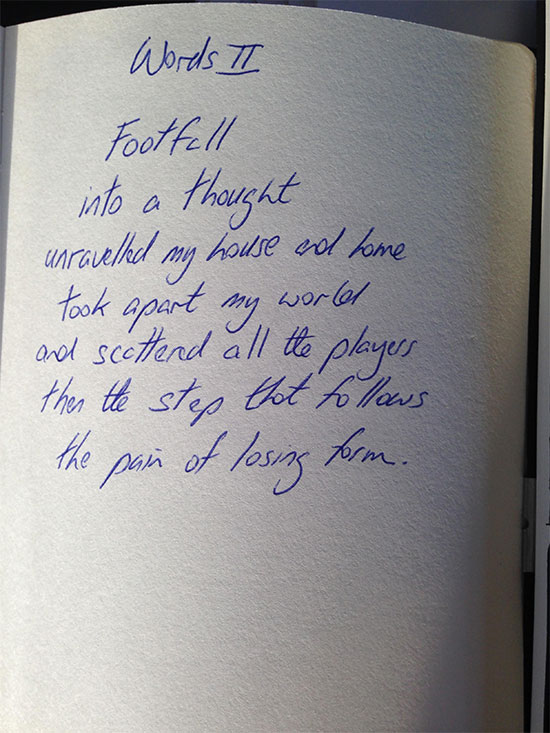 Words II
Footfall
into a thought
unravelled my house and home
took apart my world
and scattered all the players
then the step that follows
the pain of losing form.